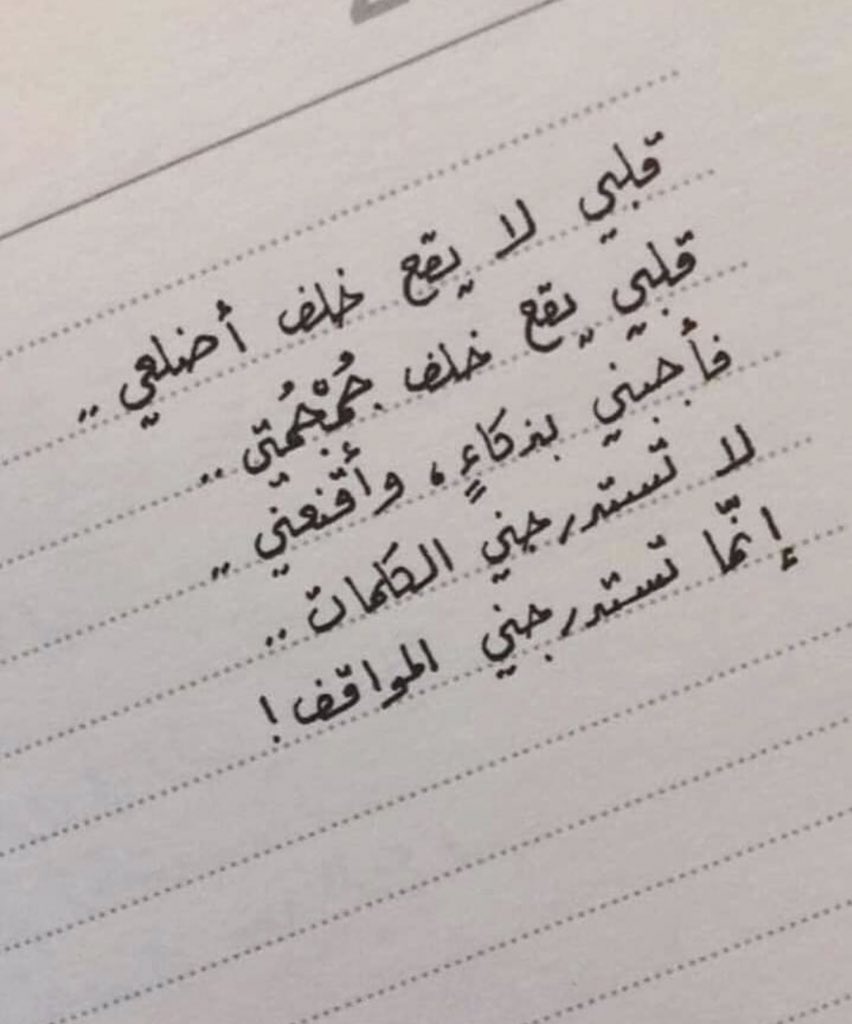 قلبي لا يقع خلف أضلعي ..
قلبي يقع خلف جُمْجُمتي ..
فأحبني بذكاءٍ، وأقنعني ..
لا تستدرجني الكلمات ..
إنّما تستدرجني المواقف!